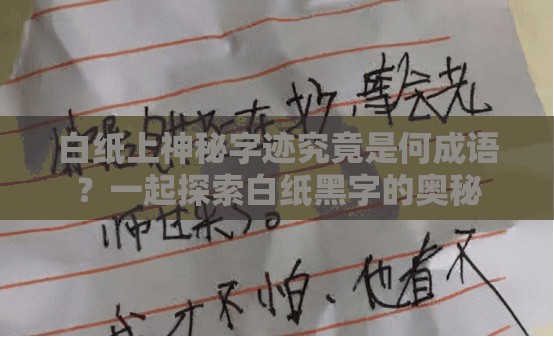 在抄，会老
白纸上神秘字迹究竟是何成语
？一起探索白纸黑字的奥秘
师过来了。
我才不怕、他看不